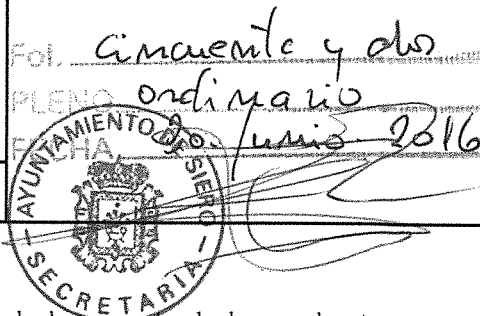 Fol. Cincuenta y dos
PLENO ordinario
FECHA 30. Junio 2016
AYUNTAMIENTO DE SIERO
- SECRETARIA -